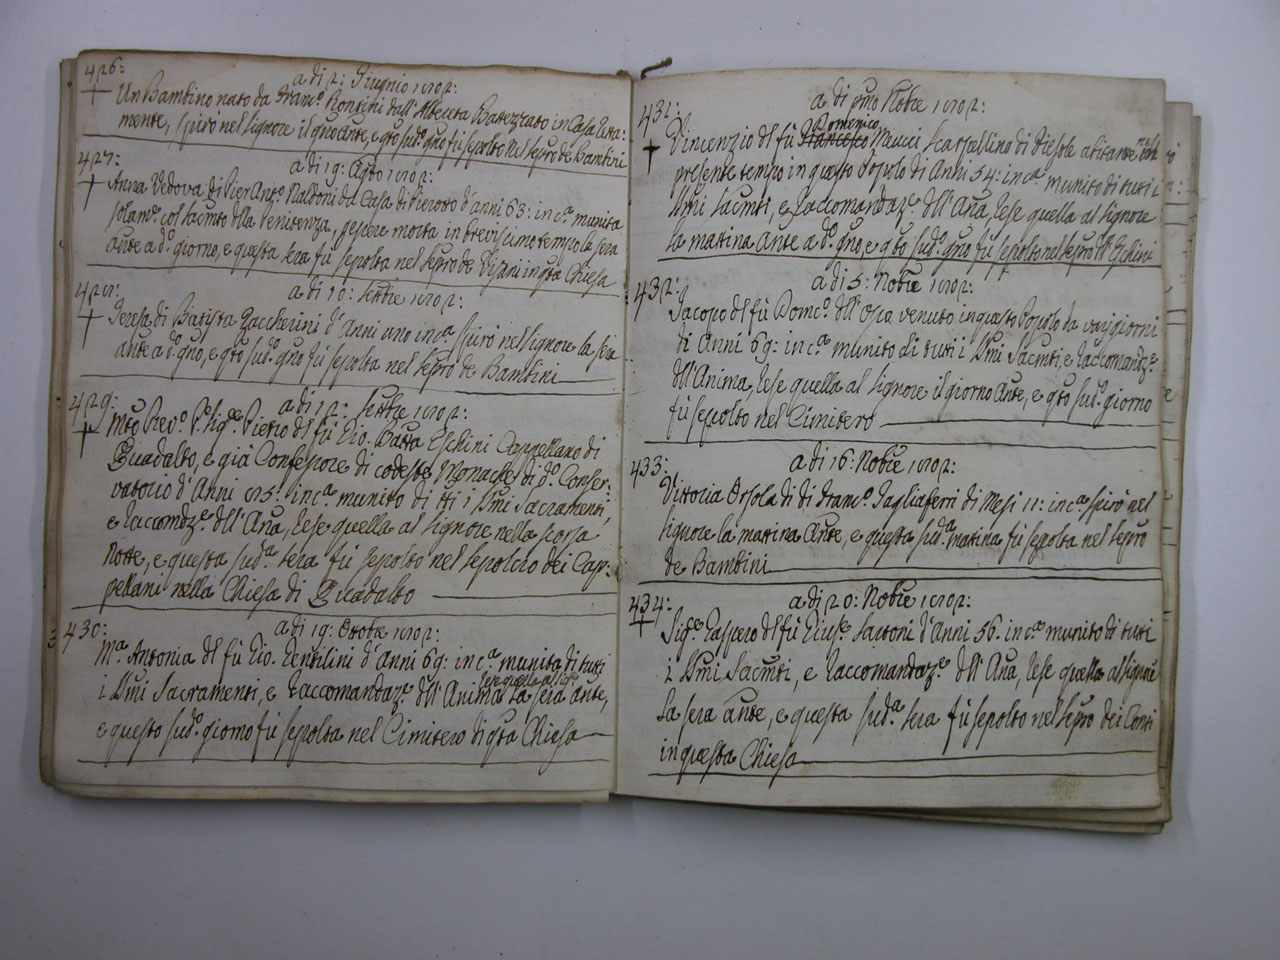 426:
a di 12: Giugno 1802:
Un Bambino nato da Franc.º Rontini dall'Albereta Battezzato in Casa
mente, spirò nel Signore il gno Ante, e qto sud.º gno fù sepolto nel sepro de Bambini
427:
a di 19: Agto 1802:
Anna Vedova di Pier Ant.º Naldoni da Casa di Pierotto d'anni 63: inc.ª munita
solam.e col Sacmto della Penitenza, p essere morta in brevissimo tempo la sera
ante a d.º giorno, e questa sera fù sepolta nel sepro de in qta Chiesa
428:
a di 10: Settre 1802:
Teresa di Batista Zaccherini d'Anni uno inc.ª spirò nel Signore la sera
ante a d.º gno, e qto sud.º gno fù sepolta nel sepro de Bambini
429:
a di 12: Settre 1802:
Mto Rev.º P.e Sig.e Pietro del fù Gio. Batta Eschini Cappellano di
Quadalto, e già Confessore di codeste Monache di d.º Conser:
vatorio d'Anni 75: inc.ª munito di tti i SSmi Sacramenti,
e raccomdz.e dell'Aña, rese quella al Signore nella scorsa
Notte, e questa sud.ª sera fù sepolto nel sepolcro dei Cap:
pellani nella Chiesa di Quadalto
430:
a di 19: Ottobre 1802:
M.ª Antonia del fù Gio. Gentilini d'Anni 69: inc.ª munita di tutti
i SSmi Sacramenti, e raccomandaz.e dell'Anima rese quella al Sigre la sera ante,
e questo sud.º giorno fù sepolta nel Cimitero di qta Chiesa
431:
a di pmo Nobre 1802:
Vincenzio del fù Francesco Domenico Meucci Scarpellino di Fiesole abitante nel
presente tempo in questo Popolo di Anni 54: inc.ª munito di tutti i
SSmi Sacmti, e raccomandaz.e dell'Aña, rese quella al Signore
la mattina ante a d.º gno, e qto sud.º gno fù sepolto nel sepro Eschini
432:
a di 5: Nobre 1802:
Jacopo del fù Dom.co dell'Ospa venuto in questo Popolo da varj giorni
di Anni 69: inc.ª munito di tutti i SSmi Sacmti, e raccomandz.e
dell'Anima, rese quella al Signore il giorno Ante, e qto sud.º giorno
fù sepolto nel Cimitero
433:
a di 16: Nobre 1802:
Vittoria Orsola di di Franc.º Tagliaferri di Mesi 11: inc.ª spirò nel
Signore la mattina Ante, e questa sud.ª mattina fù sepolta nel sepro
de Bambini
434:
a di 20: Nobre 1802:
Sig.e Gaspero del fù Gius.e Sartoni d'Anni 56. inc.ª munito di tutti
i SSmi Sacmti, e raccomandaz.e dell'Aña, rese quella al Signore
la sera ante, e questa sud.ª sera fù sepolto nel sepro dei Conti
in questa Chiesa